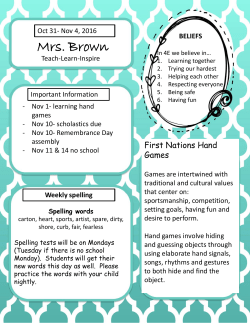 Oct 31- Nov 4, 2016
Mrs. Brown
Teach-Learn-Inspire
BELIEFS
In 4E we believe in…
1. Learning together
2. Trying our hardest
3. Helping each other
4. Respecting everyone
5. Being safe
6. Having fun
Important Information
- Nov 1- learning hand
games
- Nov 10- scholastics due
- Nov 10- Remembrance Day
assembly
- Nov 11 & 14 no school
Weekly spelling
Spelling words
carton, heart, sports, artist, spare, dirty,
shore, curb, fair, fearless
Spelling tests will be on Mondays
(Tuesday if there is no school
Monday). Students will get their
new words this day as well. Please
practice the words with your child
nightly.
First Nations Hand
Games
Games are intertwined with
traditional and cultural values
that center on:
sportsmanship, competition,
setting goals, having fun and
desire to perform.
Hand games involve hiding
and guessing objects through
using elaborate hand signals,
songs, rhythms and gestures
to both hide and find the
object.